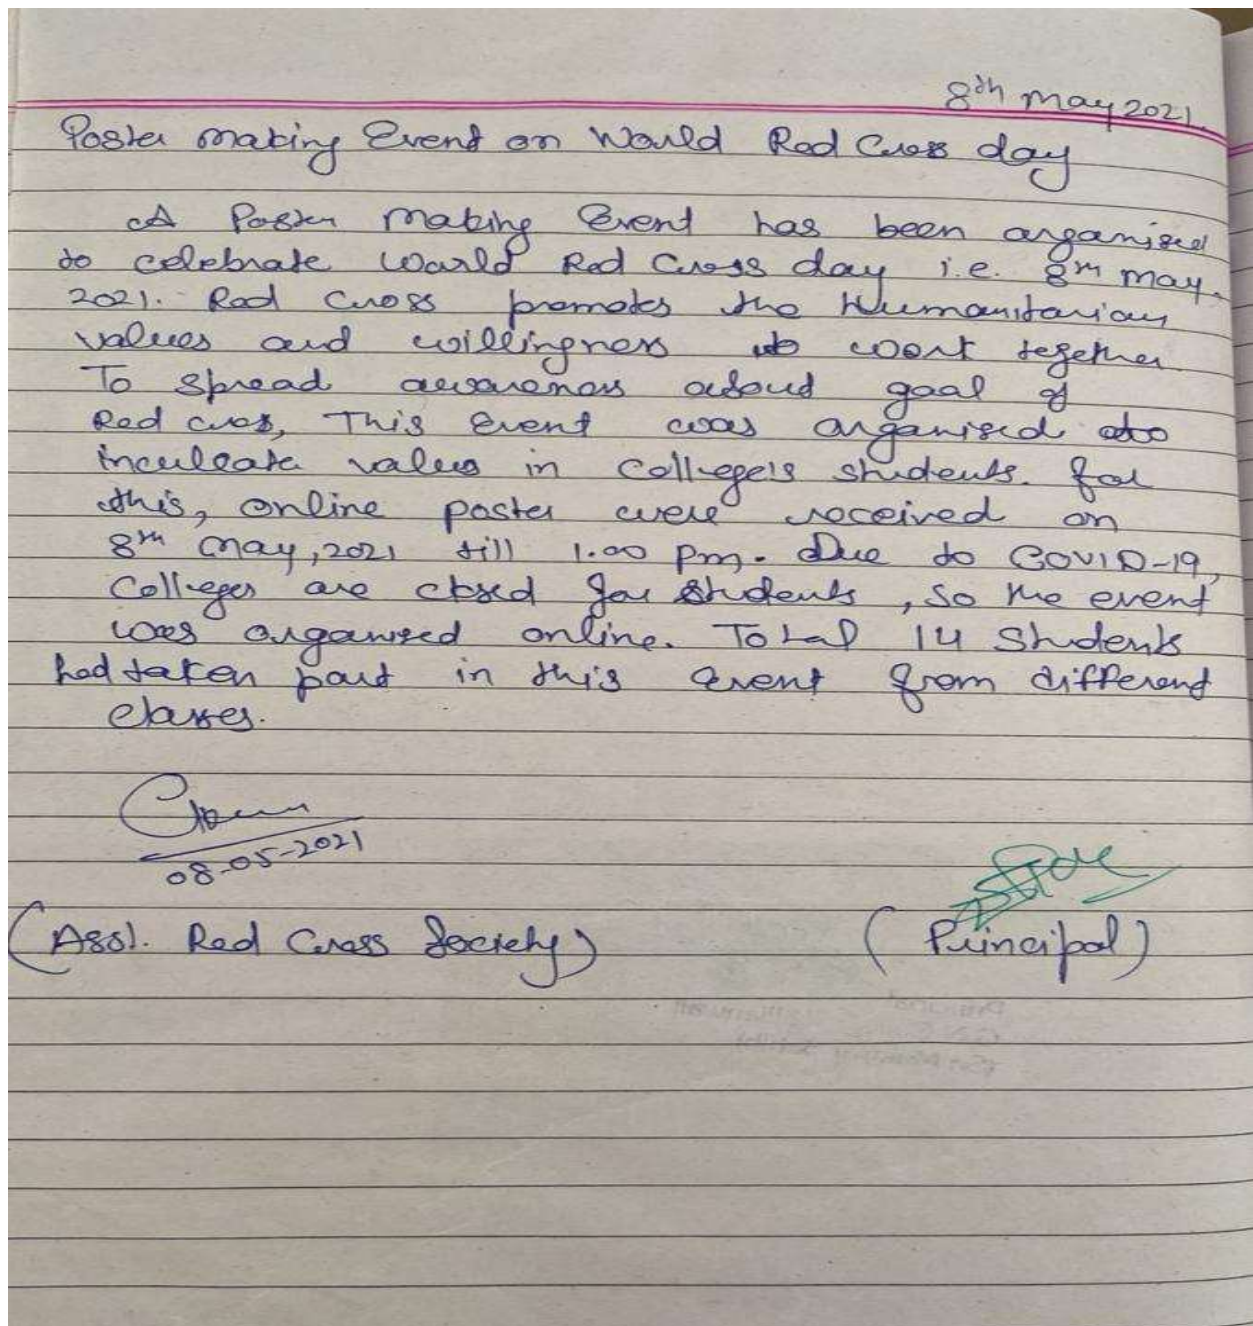 8th May 2021.
Poster making Event on World Red Cross day
A Poster Making Event has been organised
to celebrate World Red Cross day i.e. 8th May.
2021. Red Cross promotes the Humanitarian
values and willingness to work together.
To spread awareness about goal of
Red cross, This event was organised to
inculcate values in College's students. For
this, online poster were received on
8th May, 2021 till 1.00 pm. Due to COVID-19,
Colleges are closed for students, so the event
was organised online. Total 14 Students
had taken part in this event from different
classes.
08-05-2021
(Asst. Red Cross Society)
(Principal)